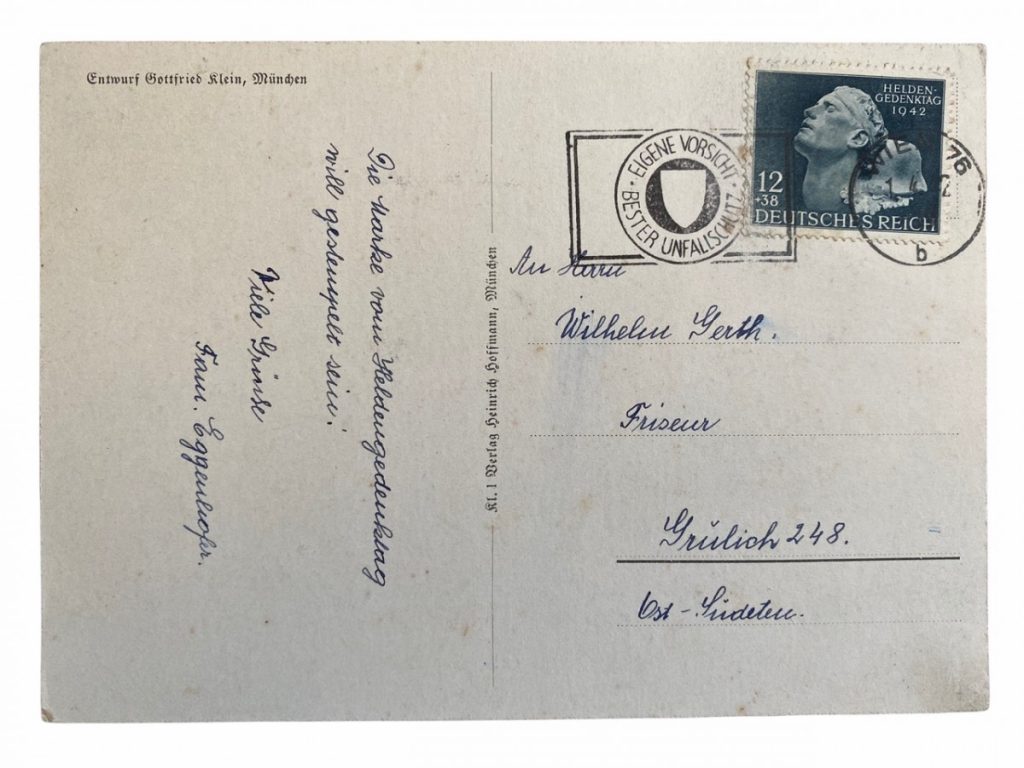 Entwurf Gottfried Klein, München
Die Marke vom Heldengedenktag
will gestempelt sein!
Viele Grüsse
Fam. Eggenhofer.
Kl. 1 Verlag Heinrich Hoffmann, München
HELDEN-
GEDENKTAG
1942
12
+38
DEUTSCHES REICH
EIGENE VORSICHT ·
BESTER UNFALLSCHUTZ ·
WIE 76
b
An Herrn
Wilhelm Gerth.
Friseur
Grulich 248.
Ost-Sudeten.